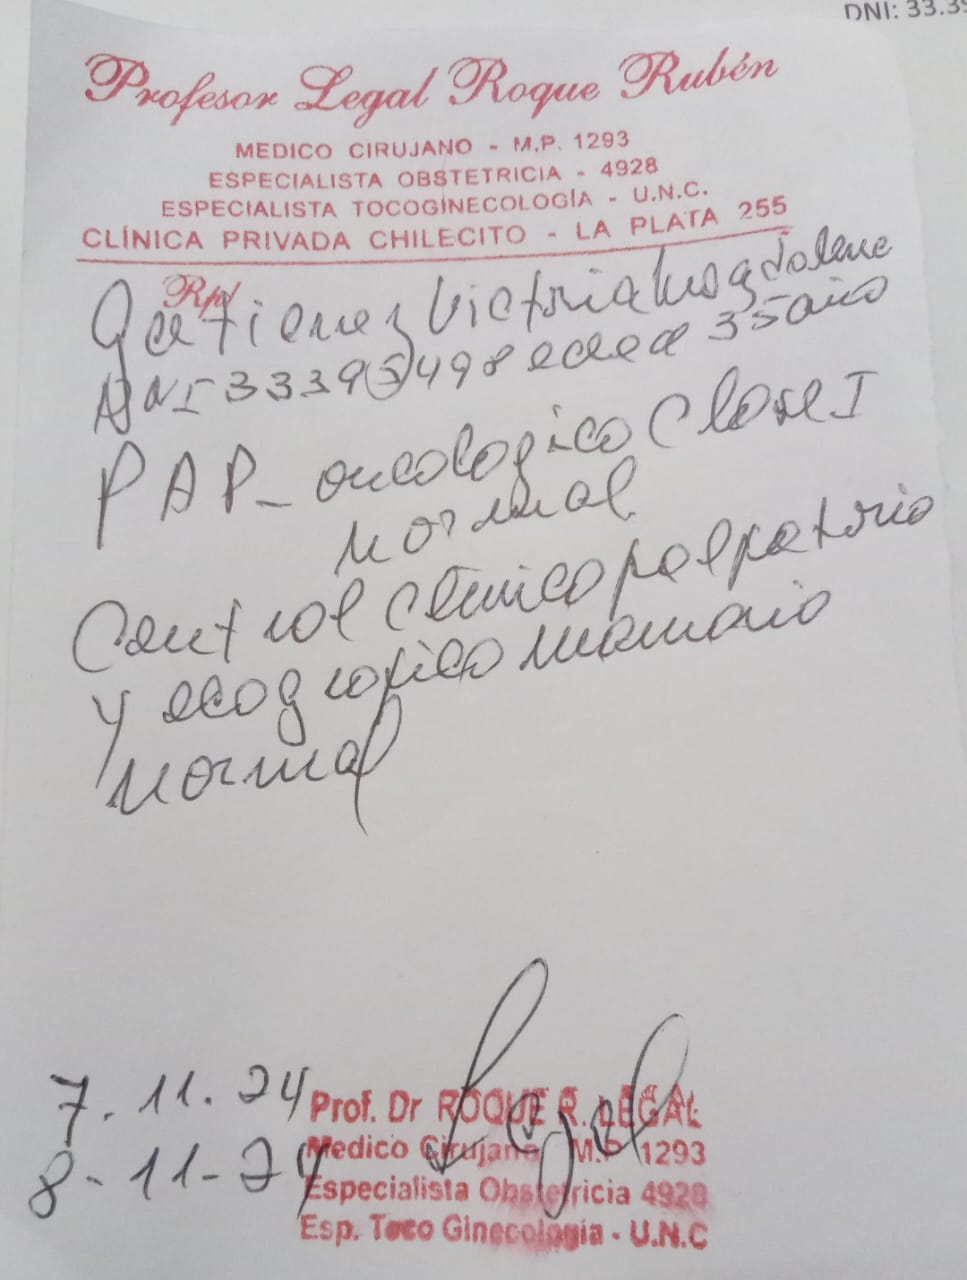 DNI: 33.39
Profesor Legal Roque Rubén
MEDICO CIRUJANO - M.P. 1293
ESPECIALISTA OBSTETRICIA - 4928
ESPECIALISTA TOCOGINECOLOGÍA - U.N.C.
CLÍNICA PRIVADA CHILECITO - LA PLATA 255
Rp/
Gutierrez Victoria Magdalena
DNI 33395498 edad 35 año
PAP - oncologico Clase I
normal
Control clinico palpatorio
y ecografico mamario
normal
7.11.24
8-11-24
Prof. Dr ROQUE R. LEGAL
Medico Cirujano M.P. 1293
Especialista Obstetricia 4928
Esp. Toco Ginecologia - U.N.C